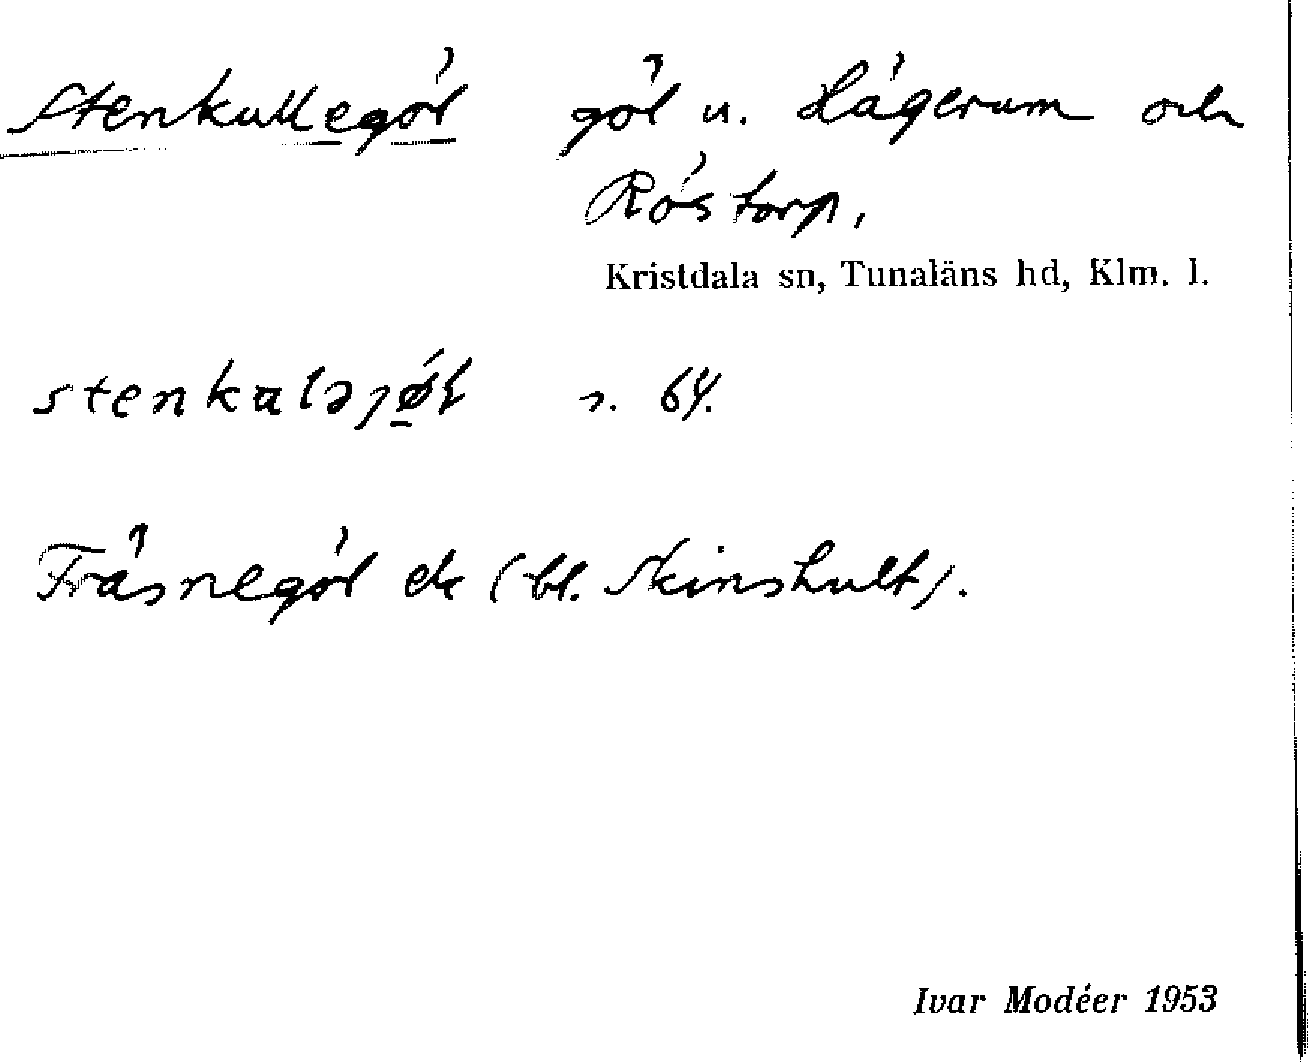 Stenkullegöl göl u. Hägerum och
Röstorp,
Kristdala sn, Tunaläns hd, Klm. l.
stenkuləjø̱l s. 64.
Fräsnegöl ek (bl. Skinshult).
Ivar Modéer 1953